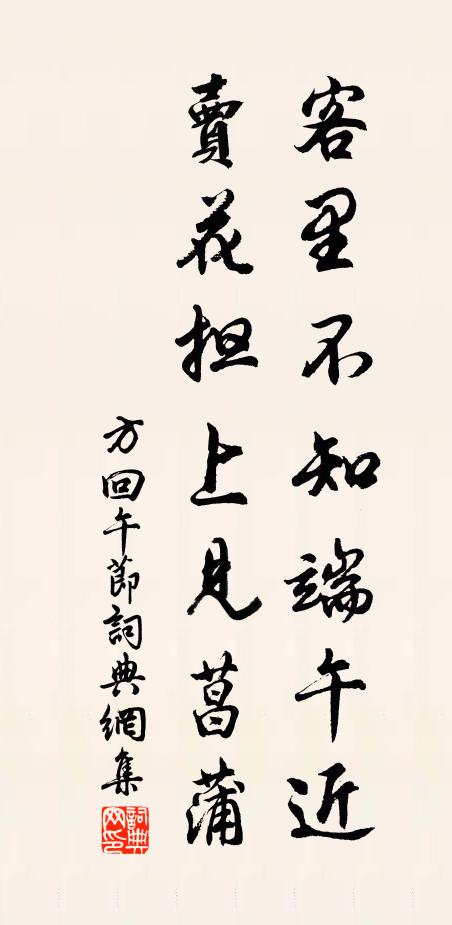 客里不知端午近
賣花担上見菖蒲
方回午節詞典網集
詞典网印